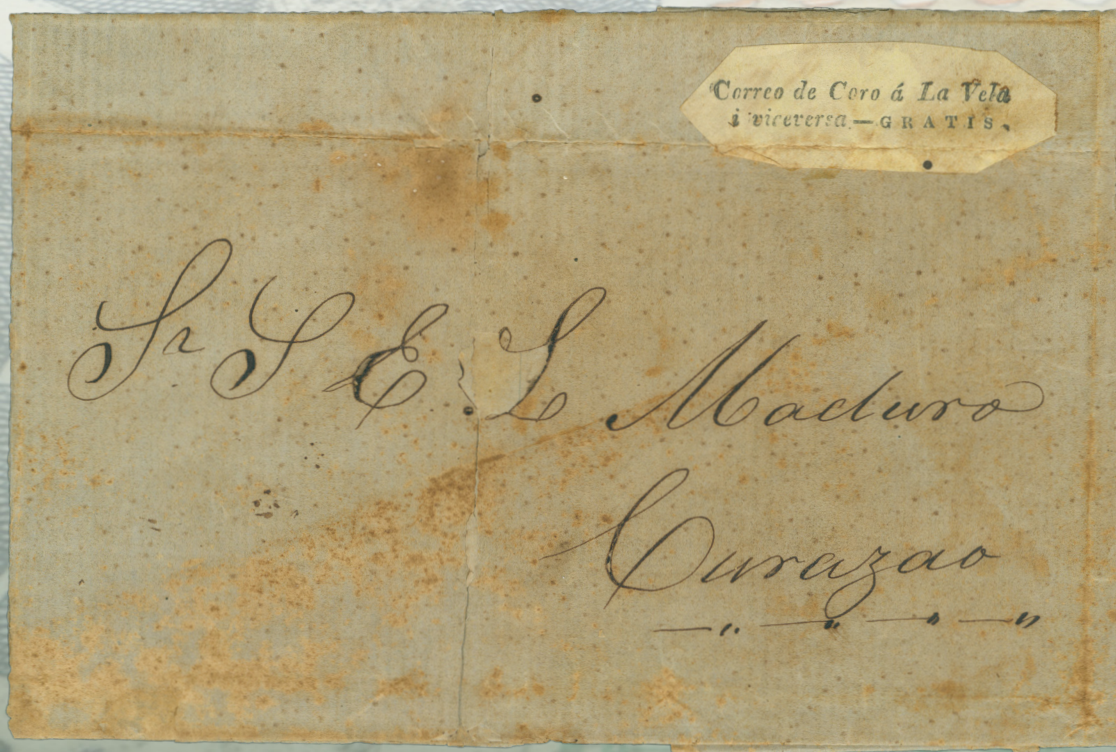 Correo de Coro á La Vela
i viceversa.—GRATIS.
Sr S E. L Maduro
Curazao